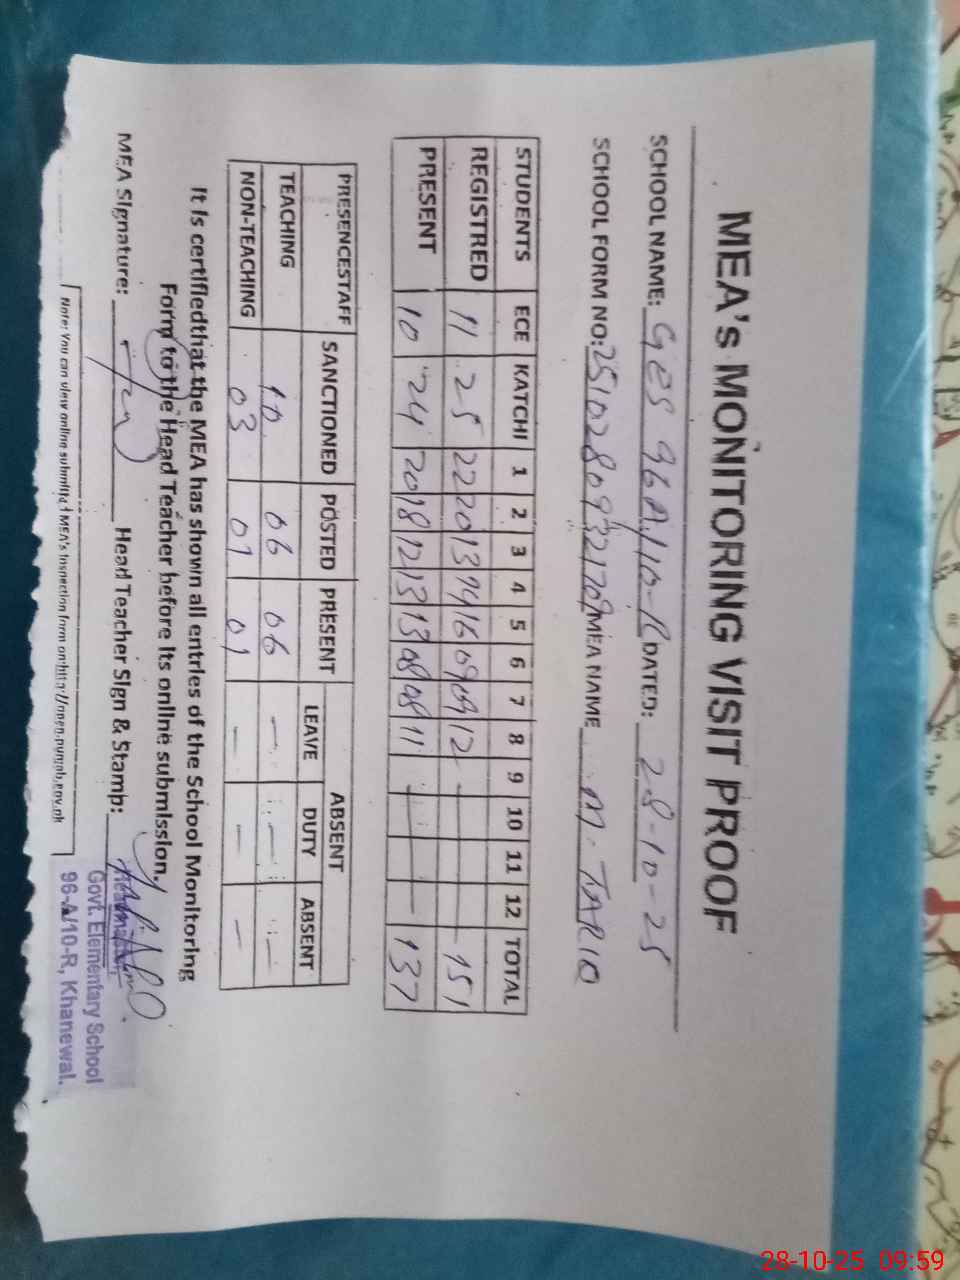 MEA's MONITORING VISIT PROOF
SCHOOL NAME: GES 96A/10-R DATED: 28-10-25
SCHOOL FORM NO: MEA NAME M. TARIQ
STUDENTS ECE KATCHI 1 2 3 4 5 6 7 8 9 10 11 12 TOTAL
REGISTRED 11 25 22 20 13 14 16 09 09 12 — — — — 151
PRESENT 10 24 20 18 12 13 13 08 08 11 — — — — 137
PRESENCESTAFF SANCTIONED POSTED PRESENT ABSENT
LEAVE DUTY ABSENT
TEACHING 10 06 06 — — —
NON-TEACHING 03 01 01 — — —
It is certifiedthat the MEA has shown all entries of the School Monitoring
Form to the Head Teacher before its online submission.
MEA Signature: Head Teacher Sign & Stamp:
Headmaster
Govt. Elementary School
96-A/10-R, Khanewal.
Note: You can view online submitted MEA's Inspection form on:
28-10-25 09:59